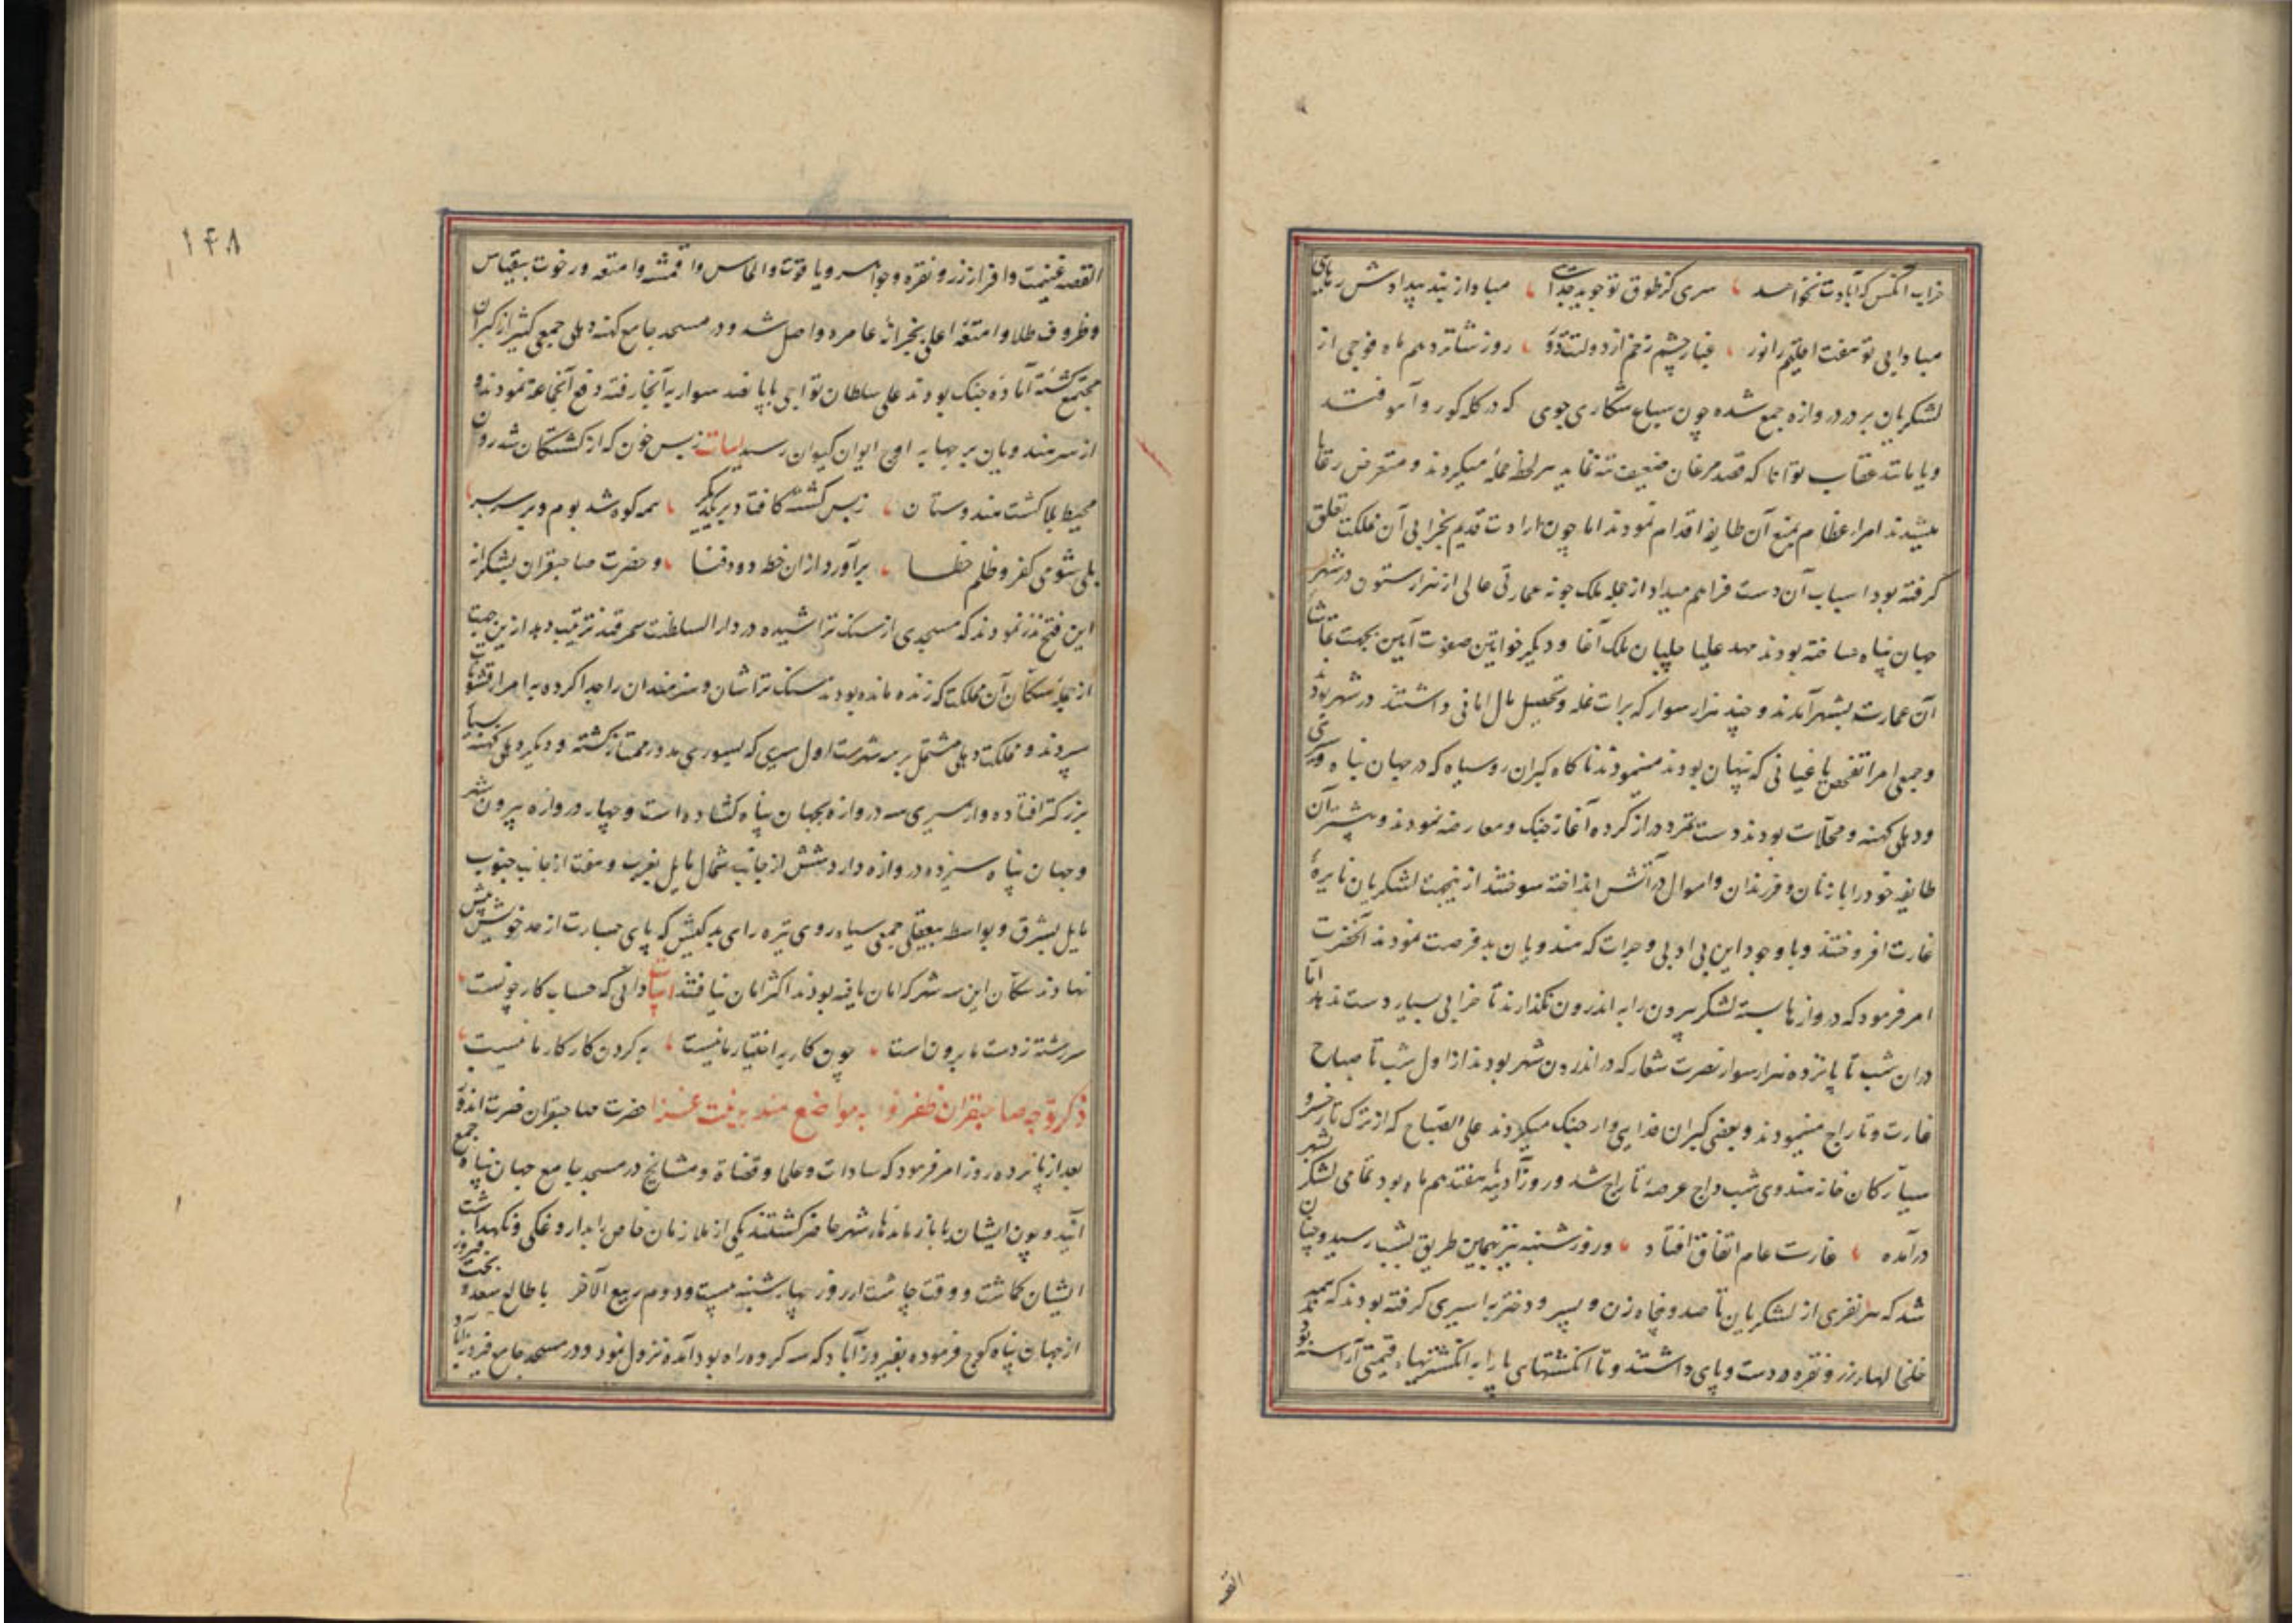 خراب آنکس که آبادت نخواهد سری کز طوق تو جوید جدائی مبادا از بند بیدادش رهایی
مبادا بی تو هفت اقلیم را نور غبار چشم زخم از دولتت دور روز شانزدهم ماه فوجی از
لشکریان بر در دروازه جمع شده چون سباع شکاری جوی که در کله کور و آهو افتند
و یا مانند عقاب توانا که قصد مرغان ضعیف تنه نماید هر لحظه حمله میکردند و متعرض رعایا
میشدند امراء عظام بمنع آن طایفه اقدام نمودند اما چون ارادت قدیم بخرابی آن مملکت تعلق
کرفته بود اسباب آن دست فراهم میداد از جمله ملک جونه عمارتی عالی از هزار ستون در شهر
جهان پناه ساخته بودند مهد علیا چلپان ملک آغا و دیکر خواتین صفوت آیین بجهت تماشا
آن عمارت بشهر آمدند و چند هزار سوار که برات غله و تحصیل مال امانی داشتند در شهر بودند
و جمعی امرا تفحص یاغیانی که پنهان بودند مینمودند ناکاه کبران روسیاه که در جهان پناه و سیری
و دهلی کهنه و محلات بودند دست تمرد دراز کرده آغاز جنک و معارضه نمودند و بیشتر آن
طایفه خود را با زنان و فرزندان و اموال در آتش انداخته سوختند از ینجهت لشکریان نایره
غارت افروختند و با وجود این بی ادبی و جرات که هندویان بد فرصت نمودند آنحضرت
امر فرمود که دروازها بسته لشکر بیرون را به اندرون نکذارند تا خرابی بسیار دست ندهد اما
دران شب تا پانزده هزار سوار نصرت شعار که در اندرون شهر بودند از اول شب تا صباح
غارت و تاراج مینمودند و بعضی کبران فدایی وار جنک میکردند علی الصباح که از ترک تاز خسرو
سیارکان خانه هندوی شب داج عرصهٔ تاراج شد و روز آدینه هفتدهم ماه بود تمامی لشکر بشهر
درآمده غارت عام اتفاق افتاد و روز شنبه نیز بهمین طریق بشب رسید و چنان
شد که هر نفری از لشکریان تا صد و پنجاه زن و پسر و دختر به اسیری کرفته بودند که همه
خلخالها از زر و نقره در دست و پای داشتند و تا انکشتهای پا را به انکشتریهاء قیمتی آراسته بود
القصه
۱۴۸
القصه غنیمت وافر از زر و نقره و جواهر و یاقوت و الماس و اقمشه و امتعه و رخوت بیقیاس
و ظروف طلا و امتعهٔ اعلی بخزانهٔ عامره واصل شد و در مسجد جامع کهنه دهلی جمعی کثیر از کبران
مجتمع کشته آمادهٔ جنک بودند علی سلطان تواجی با پانصد سوار به آنجا رفته دفع آنجماعه نمودند و
از سر هندویان برجها به اوج ایوان کیوان رسید ابیات ز بس خون که از کشتکان شد روان
محیط بلا کشت هندوستان ز بس کشته کافتاد بر یکدکر همه کوه شد بوم و بر سر بسر
بلی شومی کفر و ظلم خطا برآورد ازان خطه دود فنا و حضرت صاحبقران بشکرانه
این فتح نذر نمودند که مسجدی از سنک تراشیده در دار السلطنت سمرقند ترتیب دهد ازین جهت
از جمله سکان آن مملکت که زنده مانده بودند سنک تراشان و هنرمندان را جدا کرده به امرا و قشونات
سپردند و مملکت دهلی مشتمل بر سه شهرست اول سیری که بسوری مدور ممتاز کشته و دیکر دهلی کهنه بسیار
بزرکتر افتاده و از سیری سه دروازه بجهان پناه کشاده است و چهار دروازه بیرون شهر
و جهان پناه سیزده دروازه دارد شش از جانب شمال مایل بغرب و هفت از جانب جنوب
مایل بشرق و بواسطه بیعقلی جمعی سیاه روی تیره رای بد کیش که پای جسارت از حد خویش بیش
نهادند سکان این سه شهر که امان یافته بودند اکثر امان نیافتند ابیات دانی که حساب کار چونست
سر رشته ز دست ما برونست چون کار به اختیار ما نیست به کردن کار کار ما نیست
ذکر توجه صاحبقران ظفر لوا به مواضع هند به نیت غزا حضرت صاحبقران نصرت اندوز
بعد از پانزده روز امر فرمود که سادات و علما و قضاة و مشایخ در مسجد جامع جهان پناه جمع
آیند و چون ایشان با بازماندهاء شهر حاضر کشتند یکی از ملازمان خاص را بداروغکی و نکهداشت
ایشان کماشت و وقت چاشت از روز چهارشنبه بیست و دوم ربیع الآخر با طالع سعد و بخت فیروز
از جهان پناه کوچ فرموده بفیروزآباد که سه کروه راه بود آمده نزول نمود و در مسجد جامع فیروزآباد